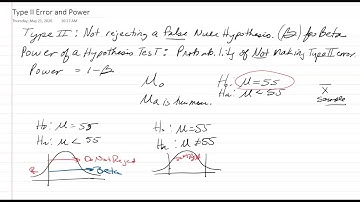 Type II Error and Power
Thursday, May 21, 2020 10:27 AM
Type II: Not rejecting a False Null Hypothesis. (β) for Beta
Power of a Hypothesis Test: Probability of Not Making Type II error.
Power = 1-β
μ₀
μa is human.
H₀: μ=55
Ha: μ<55
x̄
sample
H₀: μ=55
Ha: μ<55
Do Not Reject
Beta
H₀: μ=55
Ha: μ≠55